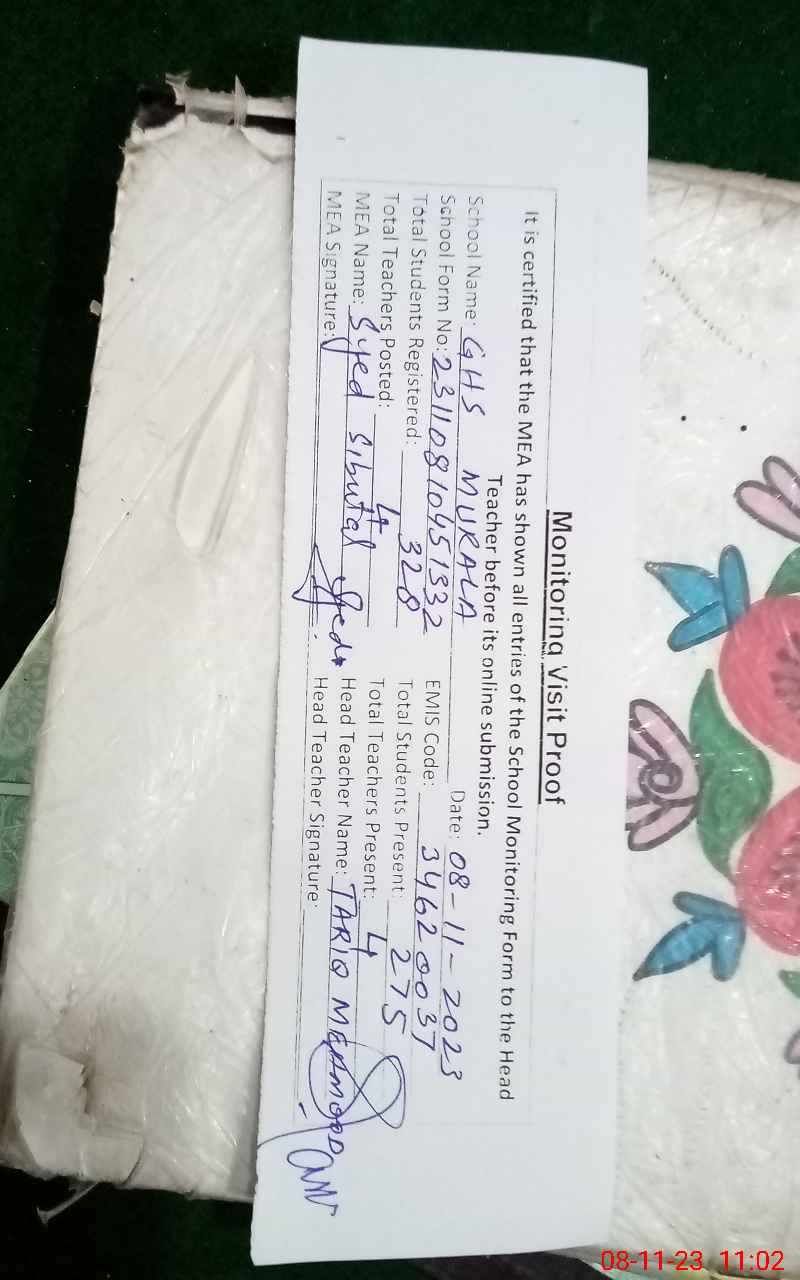 Monitoring Visit Proof
It is certified that the MEA has shown all entries of the School Monitoring Form to the Head
Teacher before its online submission.
School Name: GHS MURALA Date: 08-11-2023
School Form No: 23110810451332 EMIS Code: 34620037
Total Students Registered: 328 Total Students Present: 275
Total Teachers Posted: 4 Total Teachers Present: 4
MEA Name: Syed Sibutal Syed Head Teacher Name: TARIQ MEHMOOD
MEA Signature: Head Teacher Signature:
08-11-23 11:02